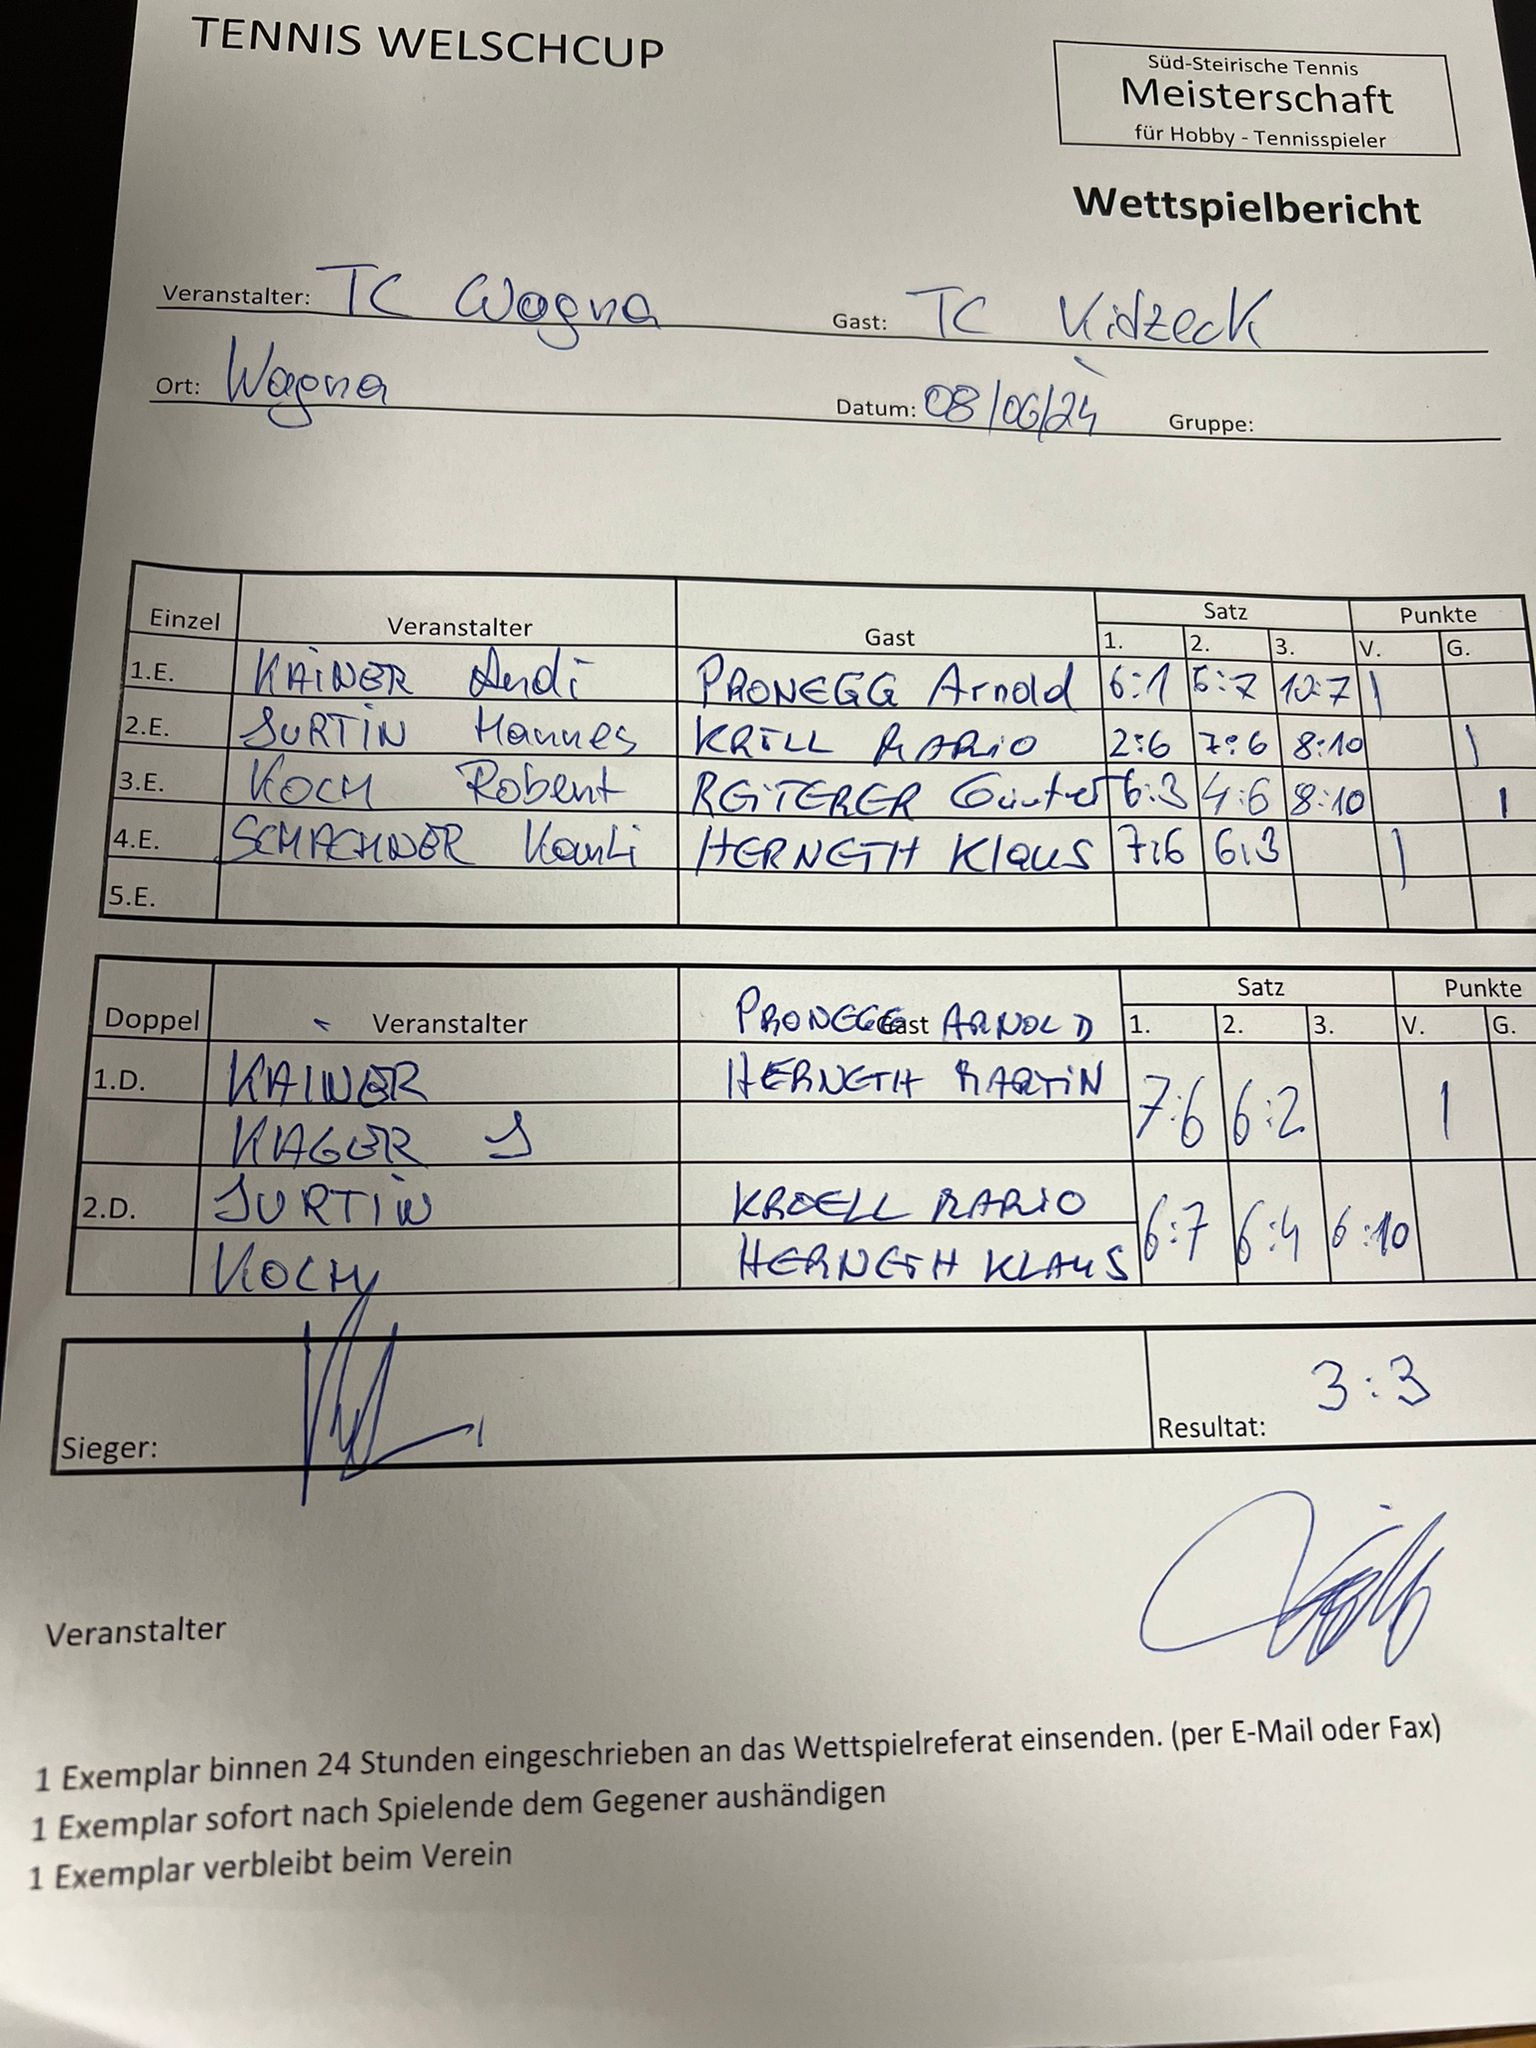 TENNIS WELSCHCUP
Süd-Steirische Tennis
Meisterschaft
für Hobby - Tennisspieler
Wettspielbericht
Veranstalter: TC Wagna Gast: TC Kitzeck
Ort: Wagna Datum: 08/06/24 Gruppe:
Einzel Veranstalter Gast Satz Punkte
1. 2. 3. V. G.
1.E. KAINER Andi PRONEGG Arnold 6:1 5:7 10:7 1
2.E. SURTIN Hannes KRELL MARIO 2:6 7:6 8:10 1
3.E. KOCH Robert REITERER Günter 6:3 4:6 8:10 1
4.E. SCHACHNER Karli HERNETH Klaus 7:6 6:3 1
5.E.
Doppel Veranstalter Gast Satz Punkte
PRONEGG ARNOLD 1. 2. 3. V. G.
1.D. KAINER HERNETH MARTIN 7:6 6:2 1
KAGER J
2.D. SURTIN KROELL MARIO 6:7 6:4 6:10
KOCH HERNETH KLAUS
Sieger: Resultat: 3:3
Veranstalter
1 Exemplar binnen 24 Stunden eingeschrieben an das Wettspielreferat einsenden. (per E-Mail oder Fax)
1 Exemplar sofort nach Spielende dem Gegener aushändigen
1 Exemplar verbleibt beim Verein